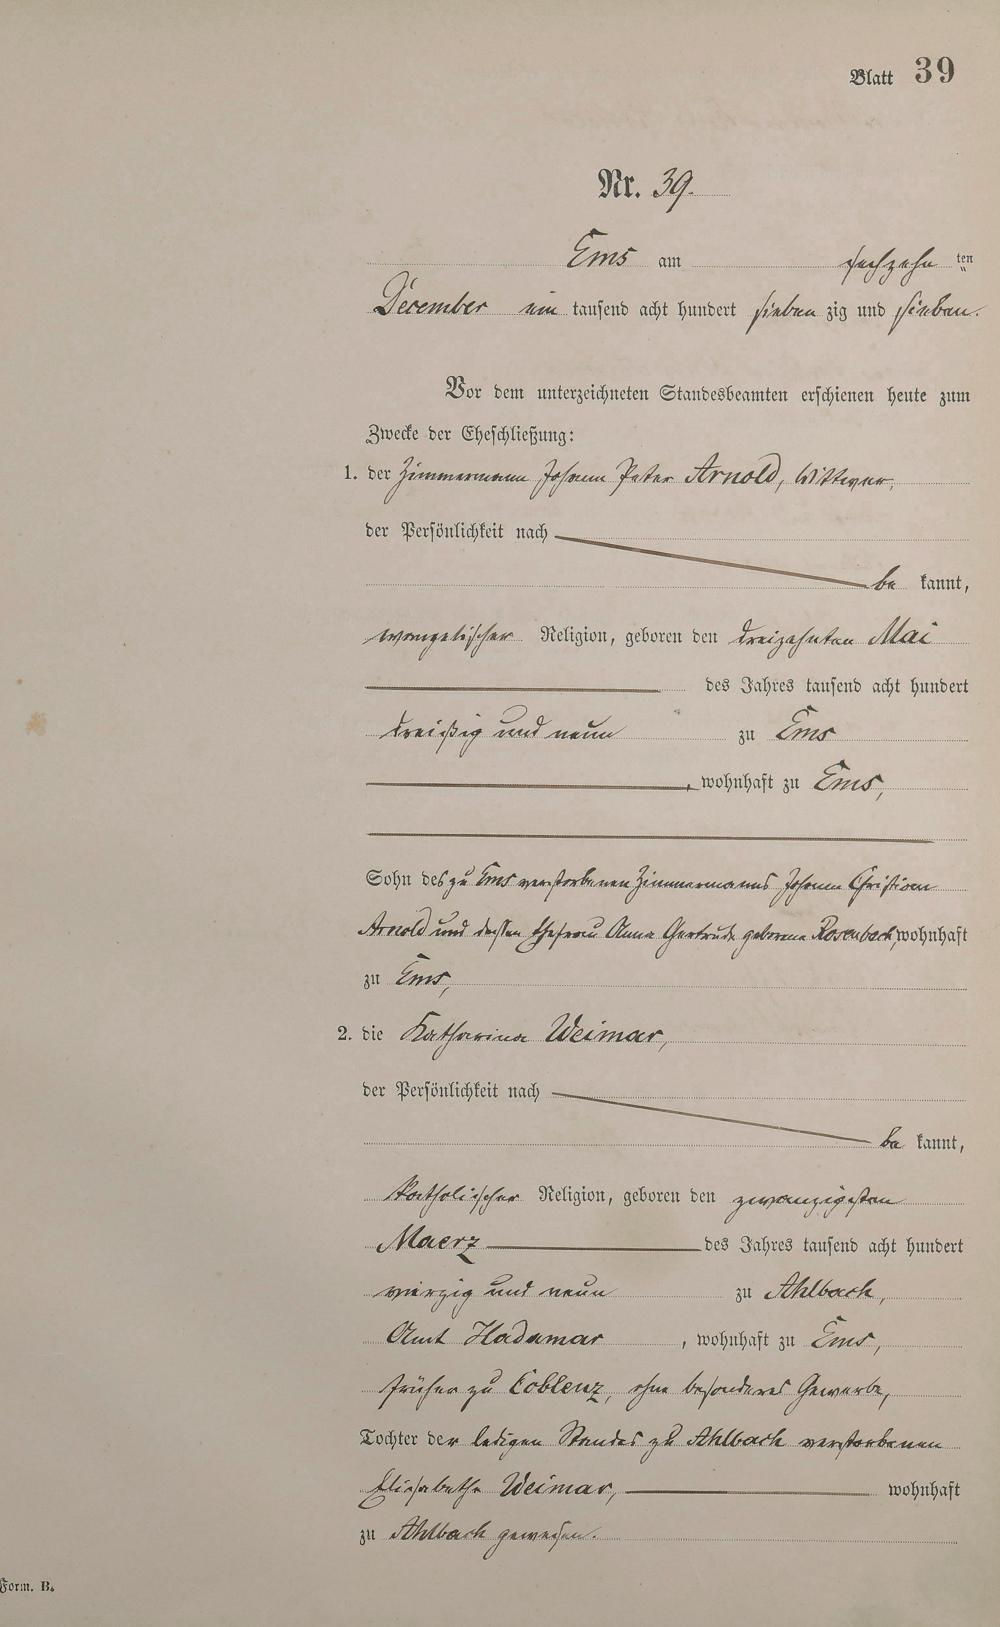 Blatt 39
Nr. 39.
Ems am sechzehn ten
December ein tausend acht hundert sieben zig und sieben.
Vor dem unterzeichneten Standesbeamten erschienen heute zum
Zwecke der Eheschließung:
1. der Zimmermann Johann Peter Arnold, Wittwer,
der Persönlichkeit nach
be kannt,
evangelischer Religion, geboren den dreizehnten Mai
des Jahres tausend acht hundert
dreißig und neun zu Ems
, wohnhaft zu Ems,
Sohn des zu Ems verstorbenen Zimmermanns Johann Christian
Arnold und dessen Ehefrau Anna Gertrude geborene Rosenbach, wohnhaft
zu Ems,
2. die Katharina Weimar,
der Persönlichkeit nach
be kannt,
katholischer Religion, geboren den zwanzigsten
Maerz des Jahres tausend acht hundert
vierzig und neun zu Ahlbach,
Amt Hadamar , wohnhaft zu Ems,
früher zu Coblenz, ohne besonderes Gewerbe,
Tochter der ledigen Standes zu Ahlbach verstorbenen
Elisabethe Weimar, wohnhaft
zu Ahlbach gewesen.
Form. B.